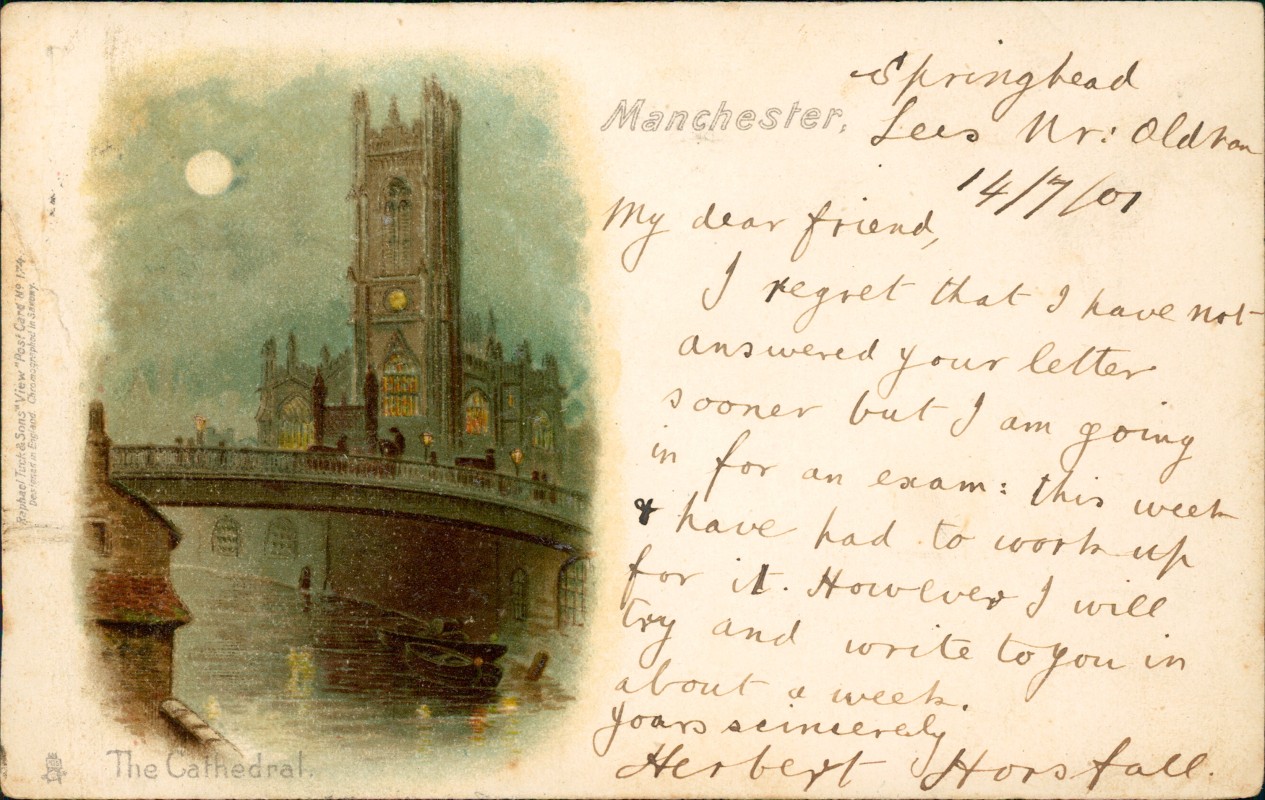 Springhead
Manchester, Lees Nr: Oldham
14/7/01
My dear friend,
I regret that I have not
answered your letter
sooner but I am going
in for an exam: this week
& have had to work up
for it. However I will
try and write to you in
about a week.
Yours scincerely
Herbert Horsfall.
The Cathedral.
Raphael Tuck & Sons' "View" Post Card No 174.
Designed in England. Chromographed in Saxony.